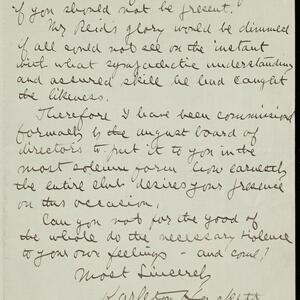 if you should not be present.
Mr Reid's glory would be dimmed
if all could not see on the instant
with what sympathetic understanding
and assured skill he had caught
the likeness.
Therefore I have been commissioned
formally by the august board of
directors to put it to you in the
most solemn form how earnestly
the entire club desires your presence
on this occasion.
Can you not for the good of
the whole do the necessary violence
to your own feelings - and come?
Most Sincerely